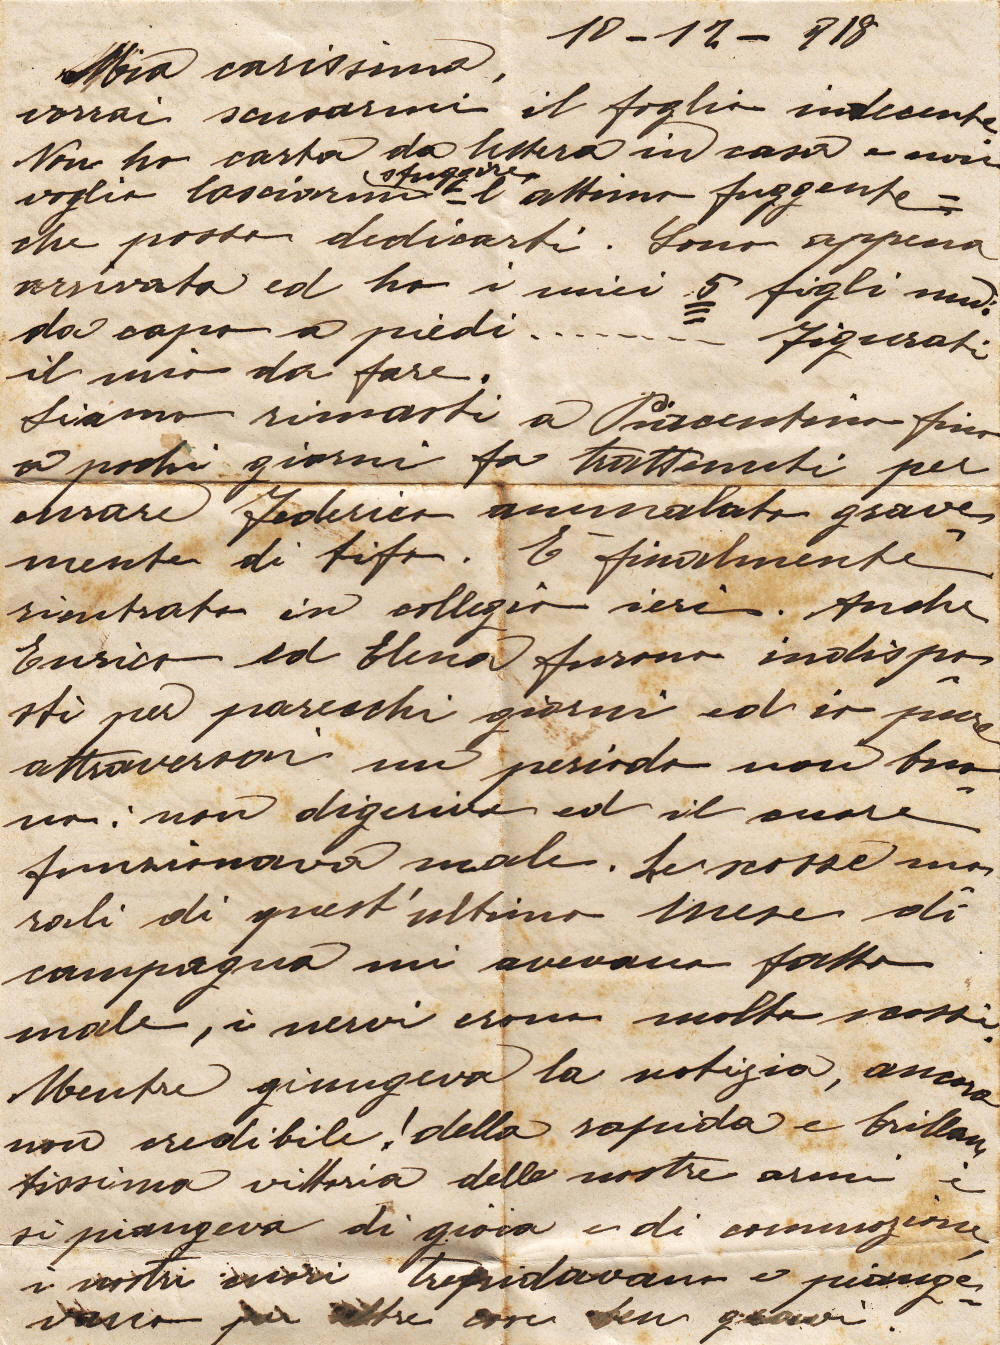 10-12-918
Mia carissima,
vorrai scusarmi il foglio indecente
Non ho carta da lettera in casa e non
sfuggire
voglio lasciarmi - l'attimo fuggente =
che posso dedicarti. Sono appena
arrivata ed ho i miei 5 figli nudi
da capo a piedi ........ Figurati
il mio da fare.
Siamo rimasti a Piacentino fino
a pochi giorni fa trattenuti per
curare Federico ammalato grave
mente di tifo. E finalmente
rientrato in collegio ieri. Anche
Enrico ed Elena furono indispo
sti per parecchi giorni ed io pure
attraversai un periodo non buo
no: non digerivo ed il cuore
funzionava male. Le scosse mo
rali di quest'ultimo mese di
campagna mi avevano fatto
male, i nervi erano molto scossi.
Mentre giungeva la notizia, ancora
non credibile! della rapida e brillan
tissima vittoria delle nostre armi e
si piangeva di gioia e di commozione,
i nostri cuori trepidavano e piange=
vano per altre cose ben gravi.